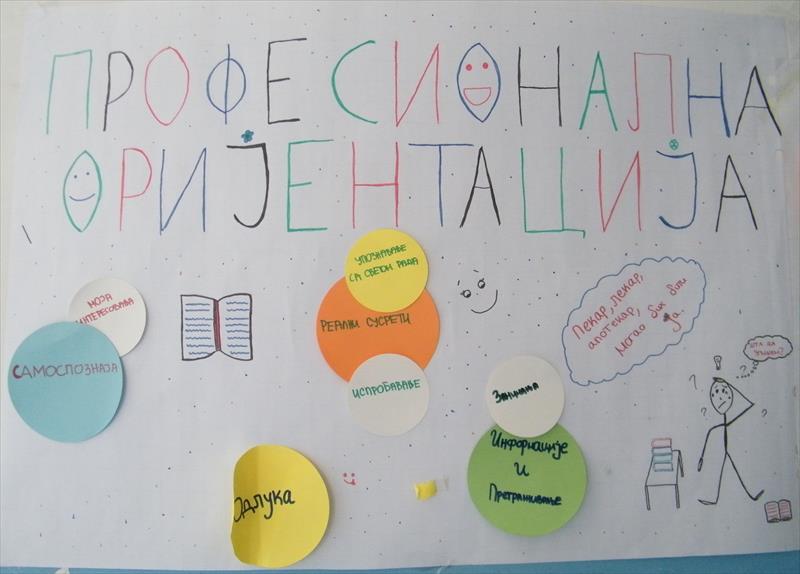 ПРОФЕСИОНАЛНА
ОРИЈЕНТАЦИЈА
МОЈА
ИНТЕРЕСОВАЊА
САМОСПОЗНАЈА
УПОЗНАВАЊЕ
СА СВЕТОМ РАДА
РЕАЛНИ СУСРЕТИ
ИСПРОБАВАЊЕ
Пекар, лекар,
апотекар,
могао бих бити
ја
ШТА ДА
УПИШЕМ?
Занимања
Информације
и
Претраживање
Одлука